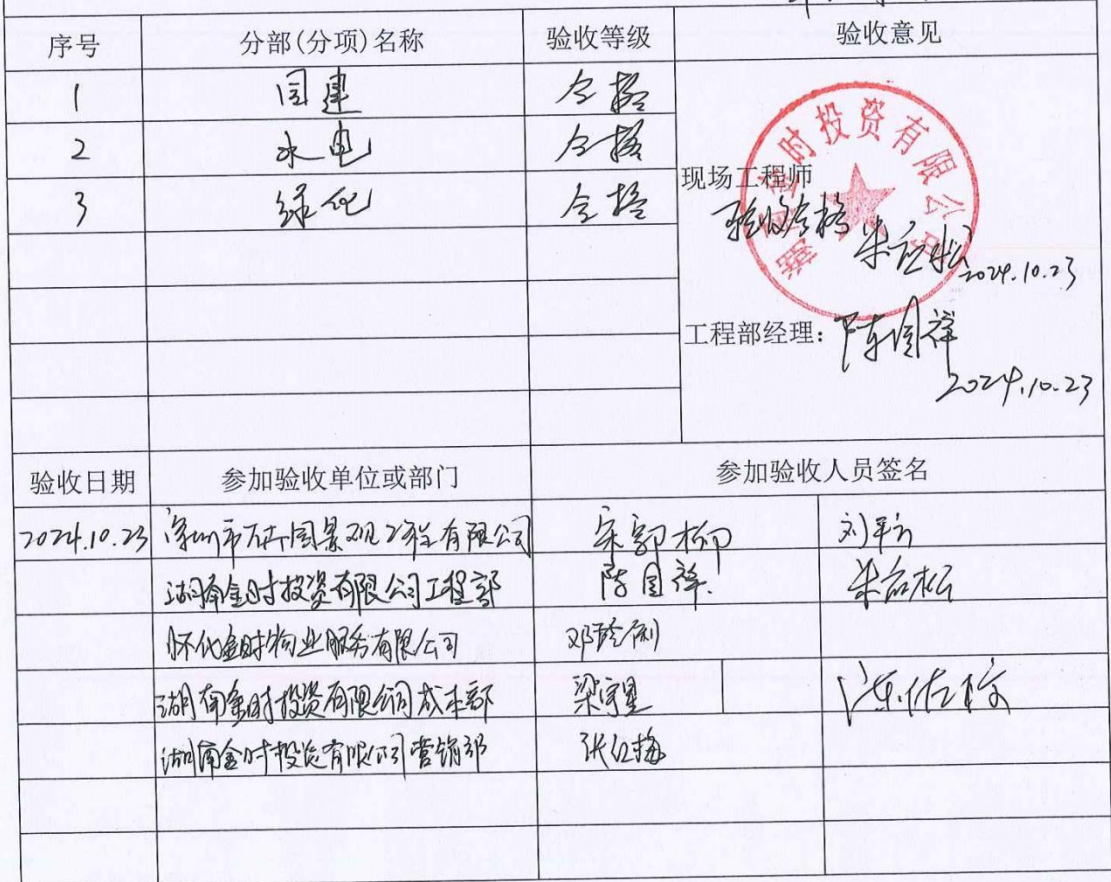 序号 分部(分项)名称 验收等级 验收意见
1 园建 合格
2 水电 合格
3 绿化 合格
时投资有限公
现场工程师
验收合格 朱应松
2024.10.23
工程部经理: 陈国祥
2024.10.23
验收日期 参加验收单位或部门 参加验收人员签名
2024.10.23 深圳市 园景观工程有限公司 宋郭柳 刘
湖南金时投资有限公司工程部 陈国祥 朱应松
怀化金时物业服务有限公司 邓
湖南金时投资有限公司成本部 梁
湖南金时投资有限公司营销部 张红梅